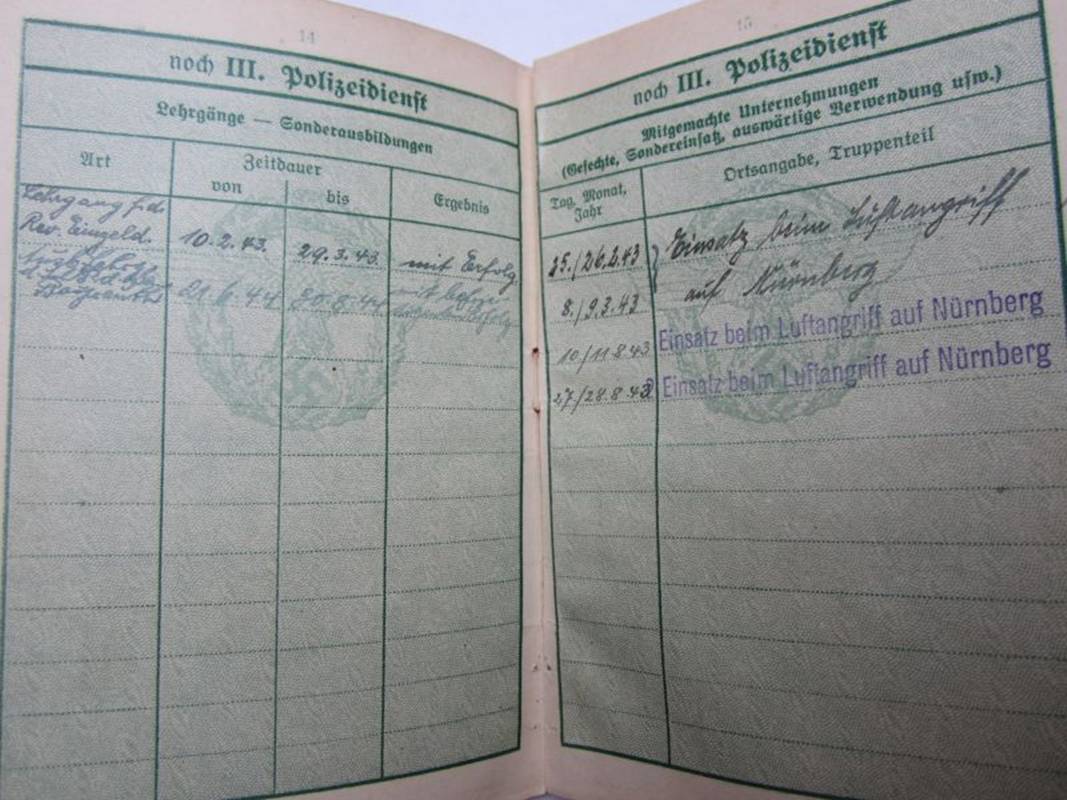 14
noch III. Polizeidienst
Lehrgänge — Sonderausbildungen
Art
Zeitdauer
von
bis
Ergebnis
Lehrgang f. d.
Rev.
10.2.43.
29.3.43.
mit Erfolg.
21.6.44
mit
Erfolg
15
noch III. Polizeidienst
Mitgemachte Unternehmungen
(Gefechte, Sondereinsatz, auswärtige Verwendung usw.)
Tag, Monat,
Jahr
Ortsangabe, Truppenteil
25./26.2.43
Einsatz beim Luftangriff
8./9.3.43
auf Nürnberg
10/11.8.43
Einsatz beim Luftangriff auf Nürnberg
27/28.8.43
Einsatz beim Luftangriff auf Nürnberg